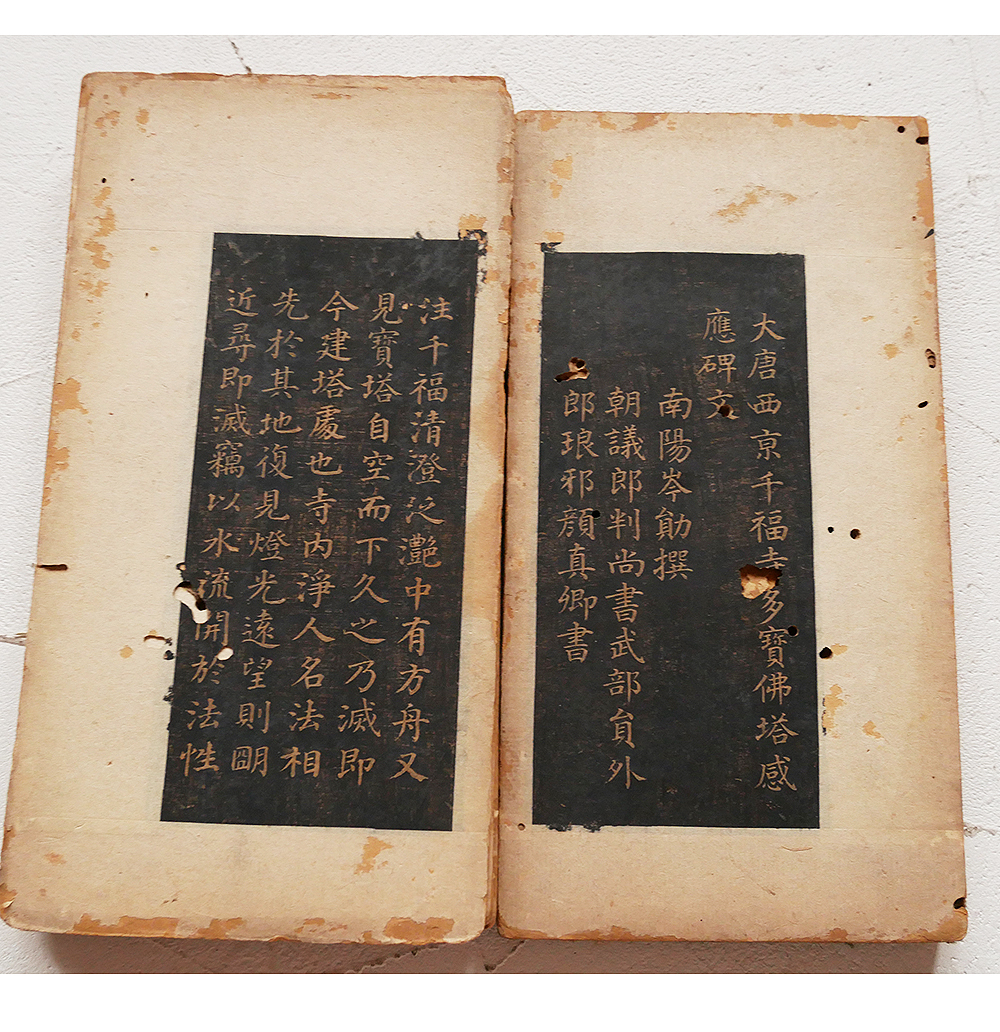 大唐西京千福寺多寶佛塔感
應碑文
南陽岑勛撰
朝議郎判尚書武部貟外
郎琅邪顏真卿書
注千福清澄泛灧中有方舟又
見寶塔自空而下久之乃滅即
今建塔處也寺内淨人名法相
先於其地復見燈光遠望則明
近尋即滅竊以水流開於法性